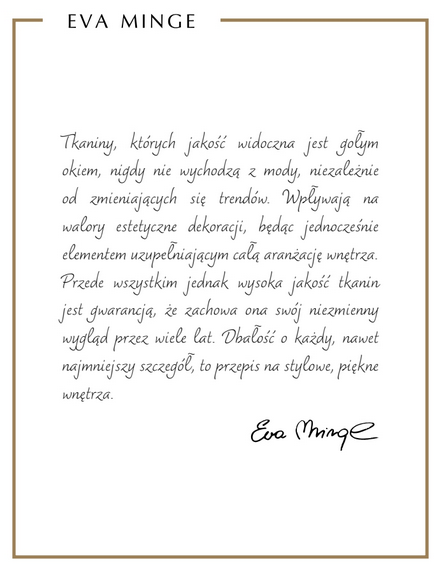 EVA MINGE
Tkaniny, których jakość widoczna jest gołym
okiem, nigdy nie wychodzą z mody, niezależnie
od zmieniających się trendów. Wpływają na
walory estetyczne dekoracji, będąc jednocześnie
elementem uzupełniającym całą aranżację wnętrza.
Przede wszystkim jednak wysoka jakość tkanin
jest gwarancją, że zachowa ona swój niezmienny
wygląd przez wiele lat. Dbałość o każdy, nawet
najmniejszy szczegół, to przepis na stylowe, piękne
wnętrza.
Eva Minge